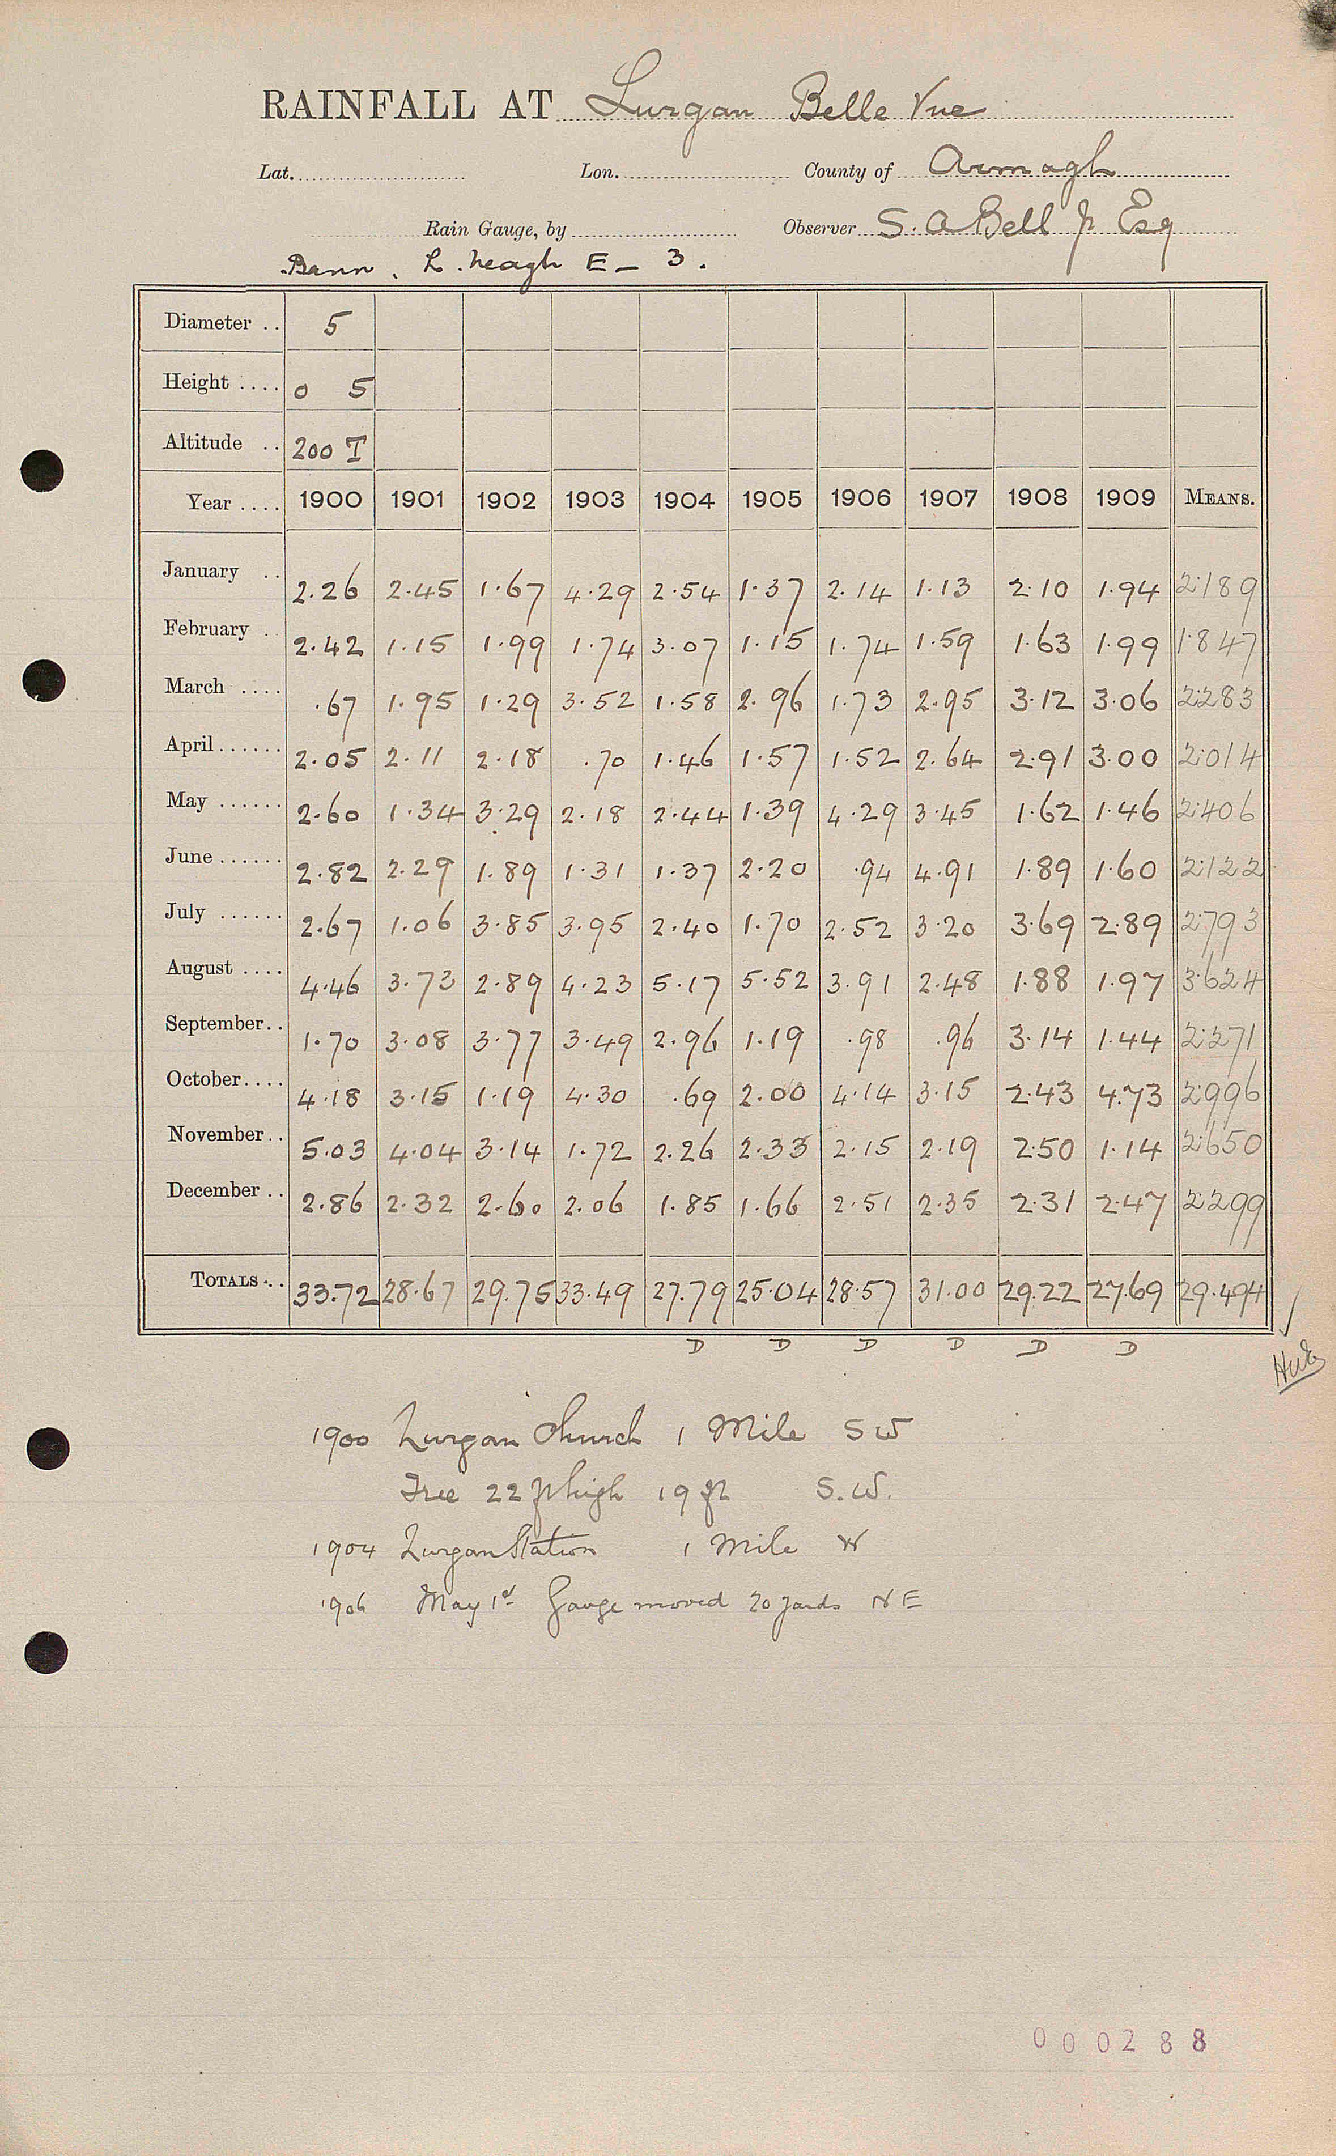 RAINFALL AT Lurgan Belle Vue
Lat. Lon. County of Armagh
Rain Gauge, by Observer S. A Bell Jr Esq
Bann . L. Neagh E – 3 .
Diameter .. 5
Height .... 0 5
Altitude .. 200 T
Year .... 1900 1901 1902 1903 1904 1905 1906 1907 1908 1909 MEANS.
January .. 2.26 2.45 1.67 4.29 2.54 1.37 2.14 1.13 2.10 1.94 2.189
February .. 2.42 1.15 1.99 1.74 3.07 1.15 1.74 1.59 1.63 1.99 1.847
March .... .67 1.95 1.29 3.52 1.58 2.96 1.73 2.95 3.12 3.06 2.283
April ...... 2.05 2.11 2.18 .70 1.46 1.57 1.52 2.64 2.91 3.00 2.014
May ...... 2.60 1.34 3.29 2.18 2.44 1.39 4.29 3.45 1.62 1.46 2.406
June ...... 2.82 2.29 1.89 1.31 1.37 2.20 .94 4.91 1.89 1.60 2.122
July ...... 2.67 1.06 3.85 3.95 2.40 1.70 2.52 3.20 3.69 2.89 2.793
August .... 4.46 3.73 2.89 4.23 5.17 5.52 3.91 2.48 1.88 1.97 3.624
September.. 1.70 3.08 3.77 3.49 2.96 1.19 .98 .96 3.14 1.44 2.271
October.... 4.18 3.15 1.19 4.30 .69 2.00 4.14 3.15 2.43 4.73 2.996
November.. 5.03 4.04 3.14 1.72 2.26 2.33 2.15 2.19 2.50 1.14 2.650
December .. 2.86 2.32 2.60 2.06 1.85 1.66 2.51 2.35 2.31 2.47 2.299
TOTALS ... 33.72 28.67 29.75 33.49 27.79 25.04 28.57 31.00 29.22 27.69 29.494
D D D D D D
1900 Lurgan Church 1 Mile SW
Tree 22 ft high 19 ft S.W.
1904 Lurgan Station 1 Mile W
1906 May 1st Gauge moved 20 yards NE
000288